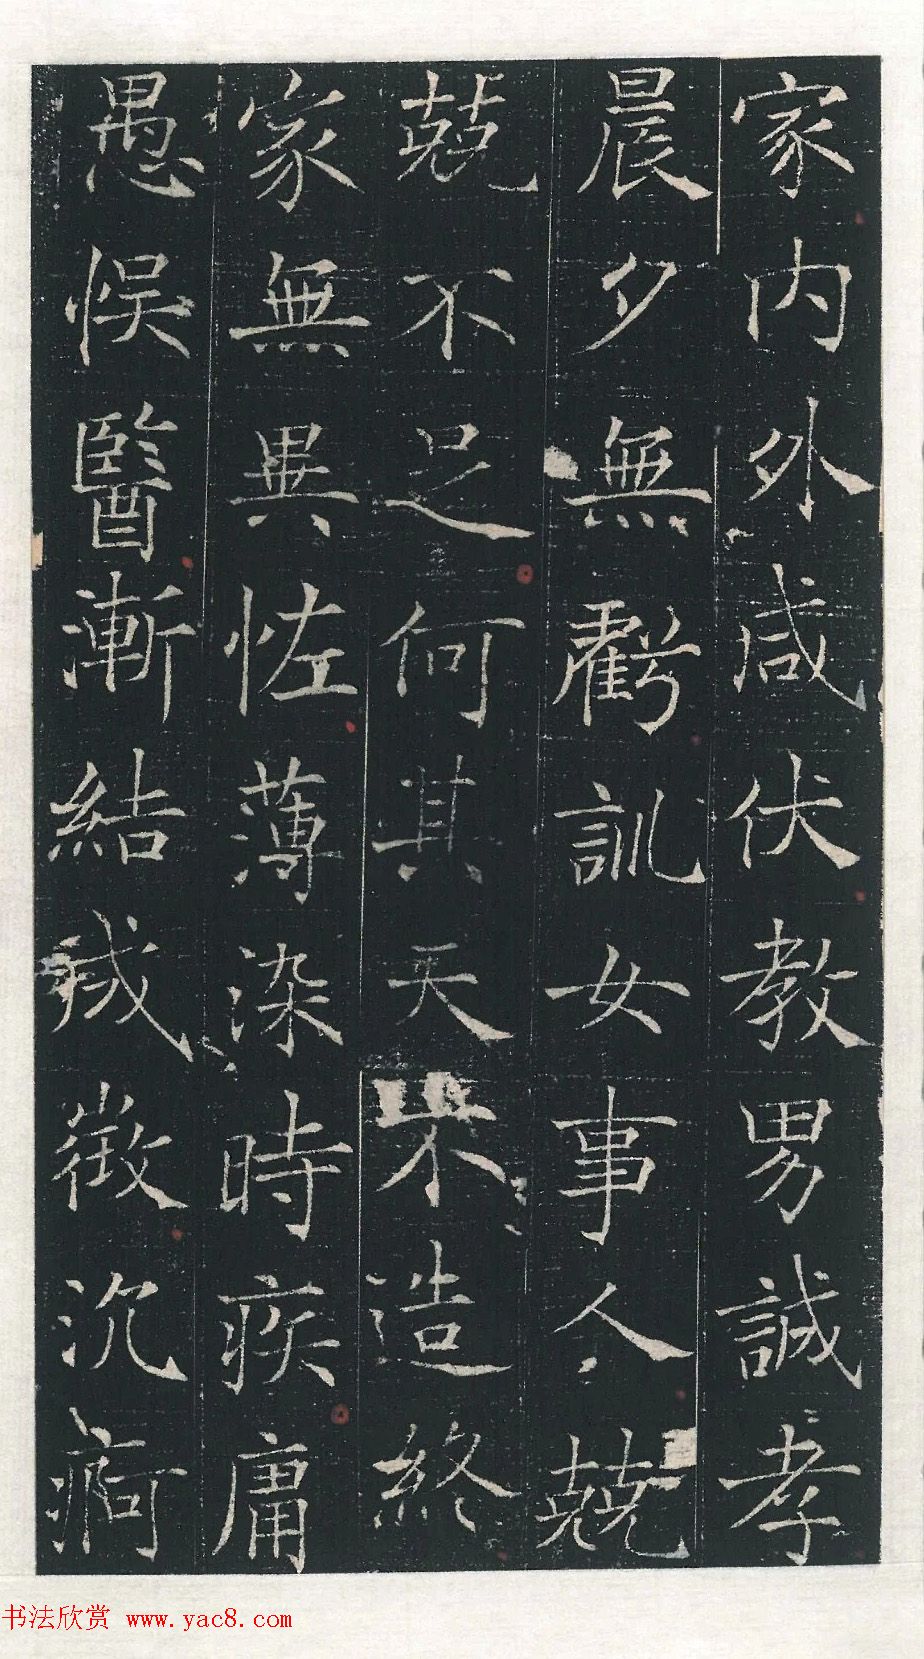 家内外咸伏教男誡孝
晨夕無虧訓女事人兢
兢不足何其天不造終
家無異怪薄染時疾庸
愚悞醫漸結成徵沉痾
书法欣赏 www.yac8.com